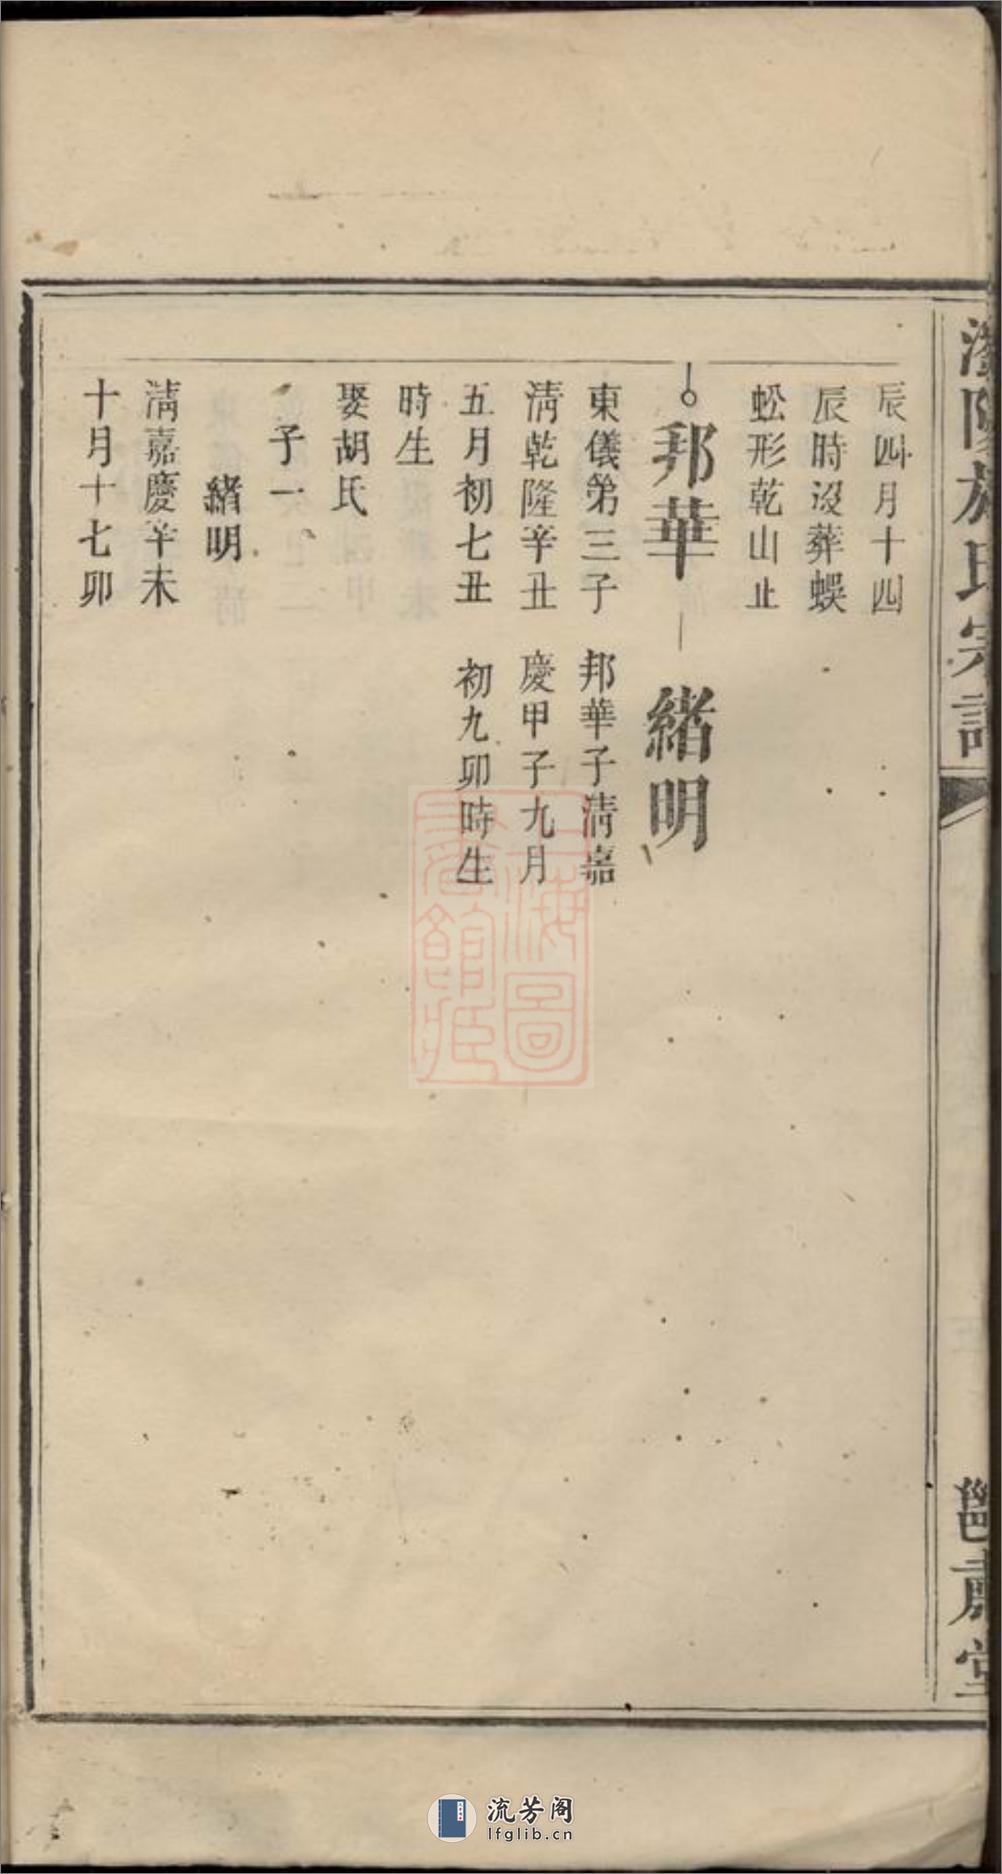 辰四月十四
辰時沒葬蜈
蚣形乾山止
邦華
緒明
東儀第三子
清乾隆辛丑
五月初七丑
時生
娶胡氏
子一
緒明
清嘉慶辛未
十月十七卯
邦華子清嘉
慶甲子九月
初九卯時生
氏宗譜
肅堂
上海圖書館藏
流芳阁
lfglib.cn